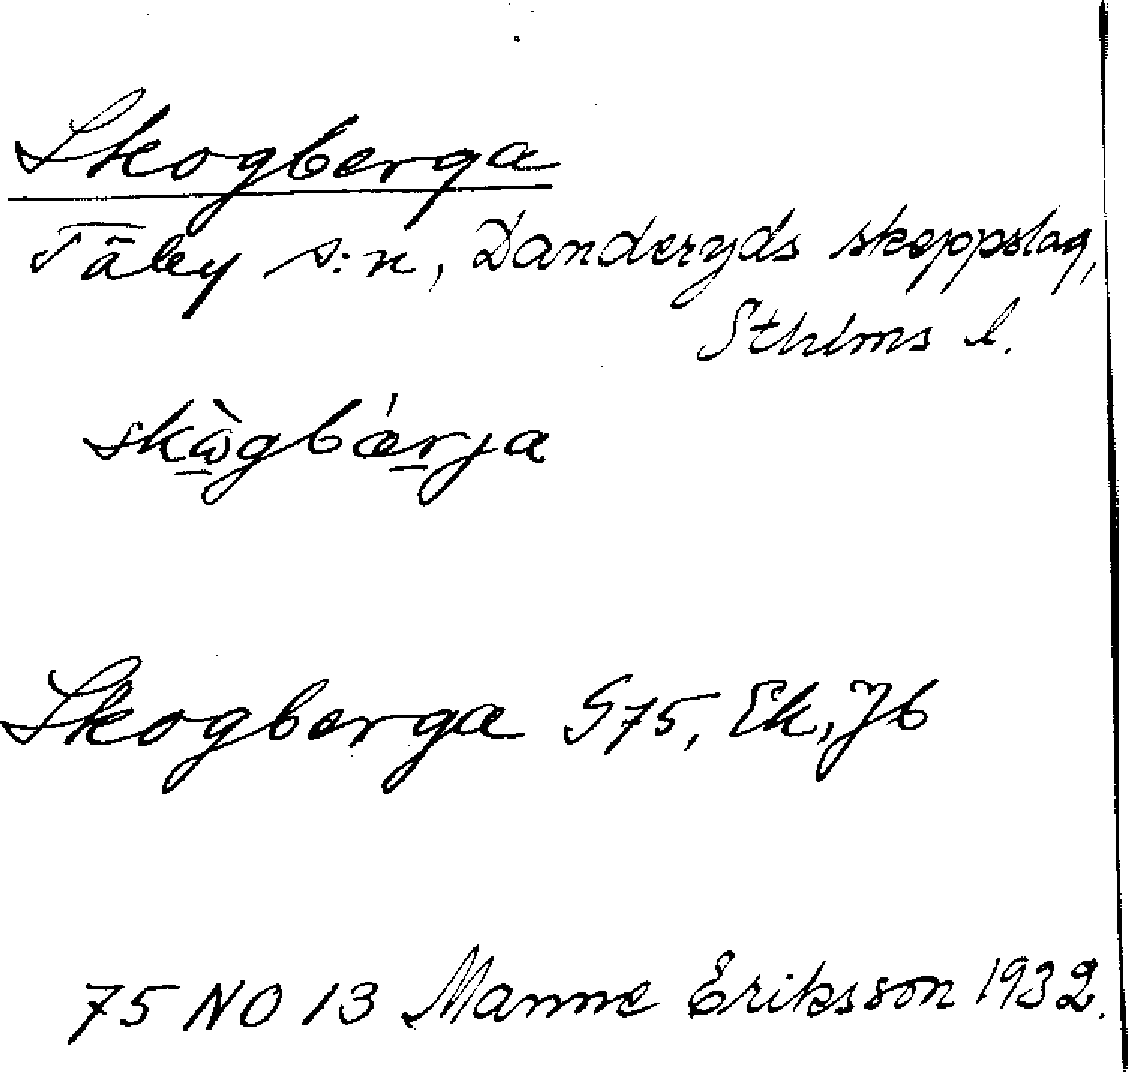 Skogberga
Täby s:n, Danderyds skeppslag,
Sthlms l.
skὼgbǽrja
Skogberga S75, Ek, Jb
75 NO 13 Manne Eriksson 1932.